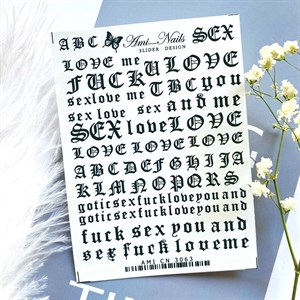 ABC Ami_Nails SEX
SLIDER DESIGN
LOVE me ULOVE
FUCK TBC you
sexlove me
sex love sex and me
SEX love LOVE
LOVE LOVE LOVE
ABCDEFGHIJ
KLMNOPQRS
goticsexfuckloveyouand
goticsexfuckloveyouand
fuck sex you and
sex fuck loveme
AMI CN 3063